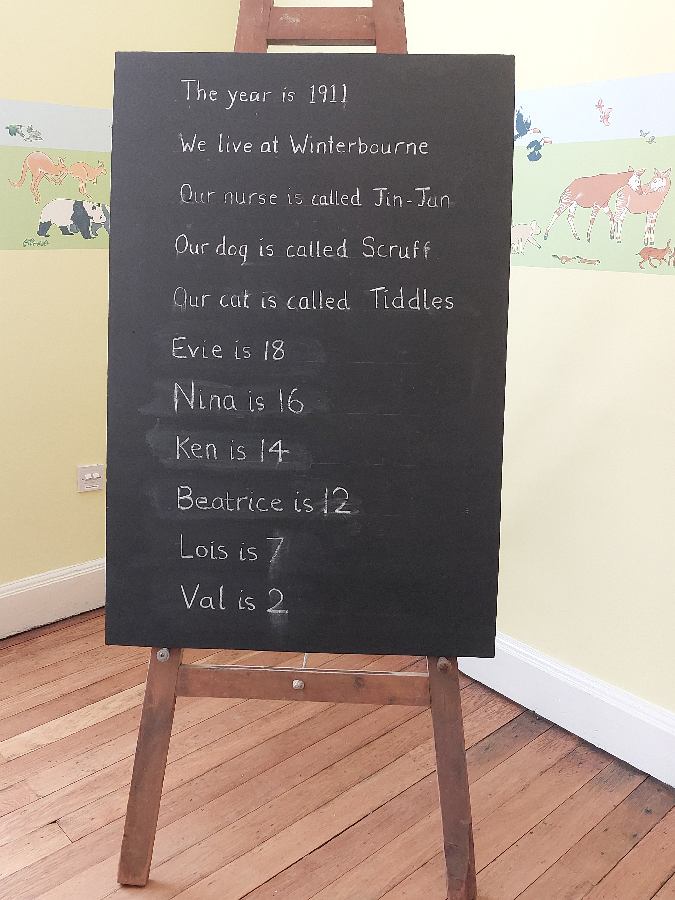 The year is 1911
We live at Winterbourne
Our nurse is called Jin-Jan
Our dog is called Scruff
Our cat is called Tiddles
Evie is 18
Nina is 16
Ken is 14
Beatrice is 12
Lois is 7
Val is 2